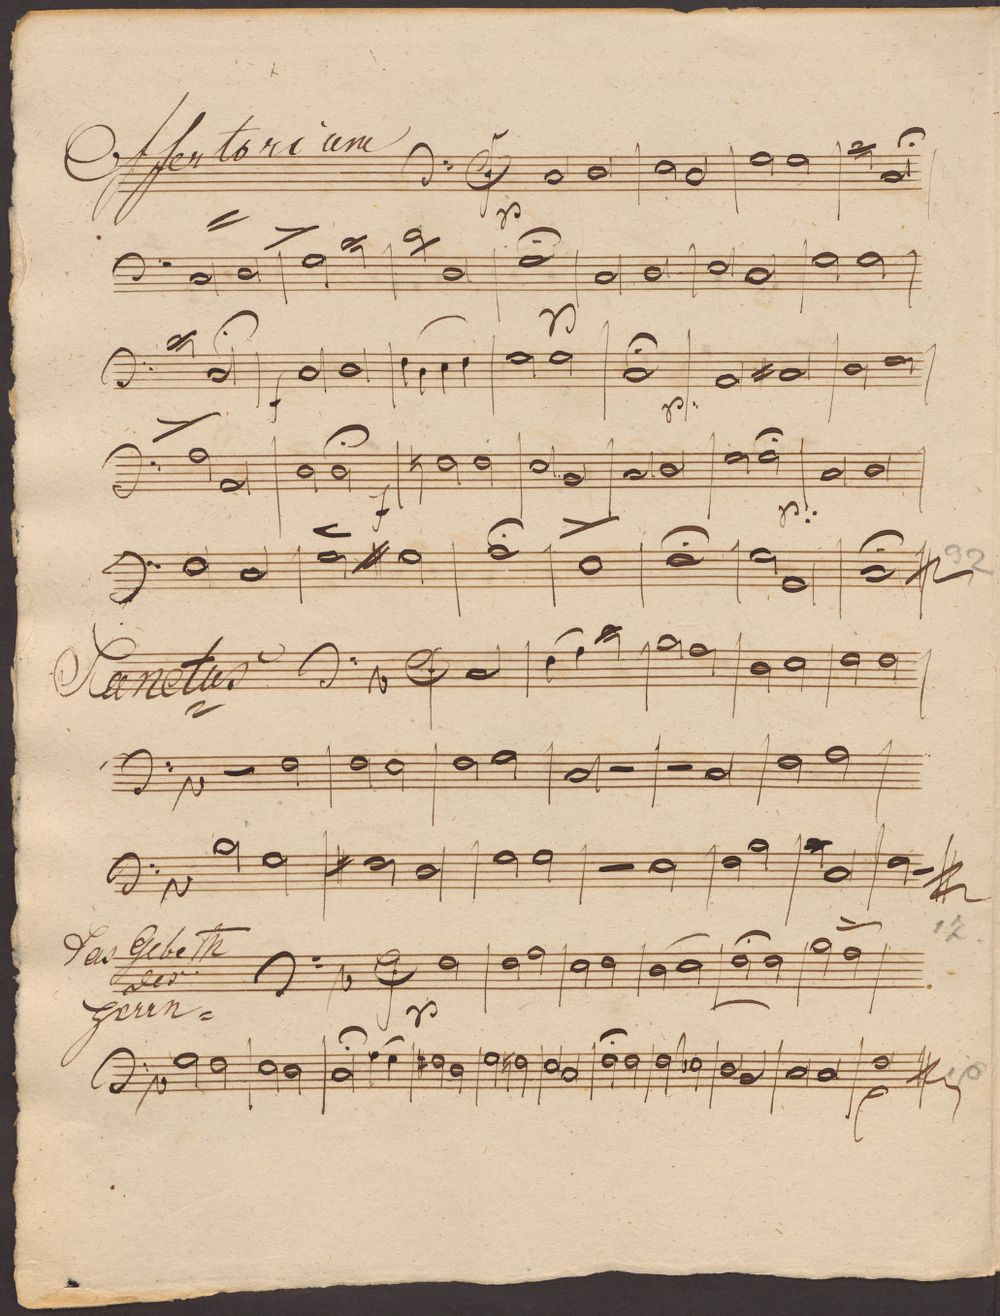 Offertorium
p
p
f
p:
f
p:
32
Sanctus
Das Gebeth
des
Herrn =
12
p
10